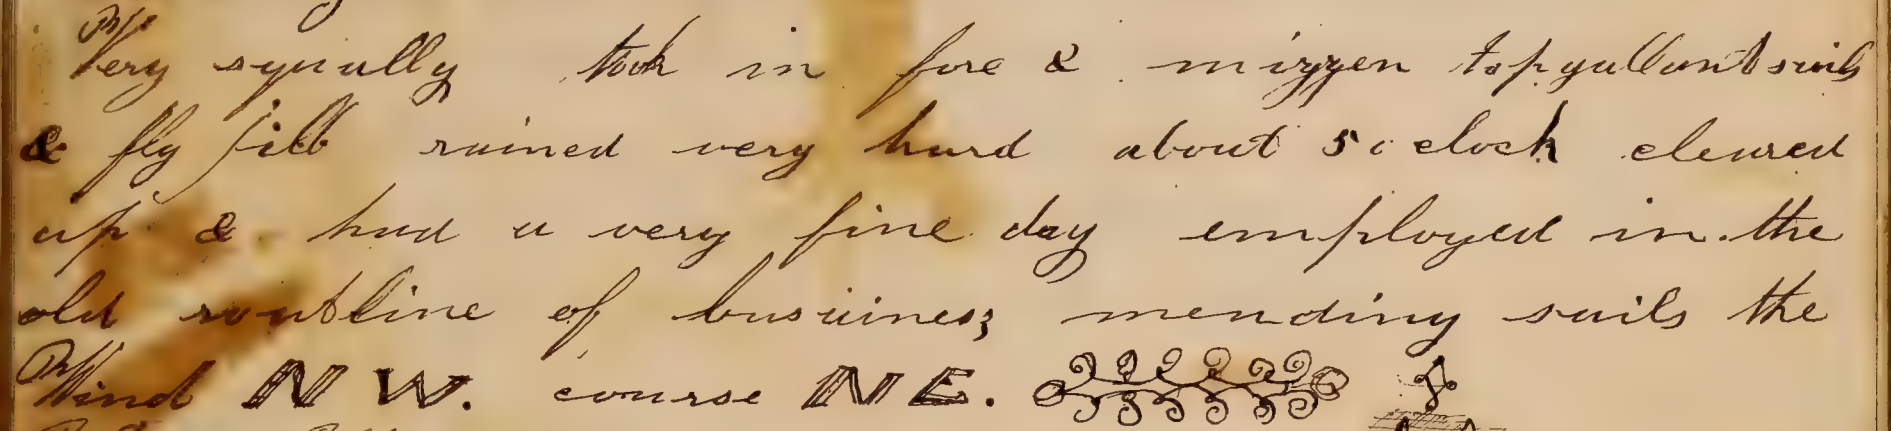 Very squally took in fore & mizzen topgallantsails
& fly jibb rained very hard about 5 oclock cleared
up & had a very fine day employed in the
old routline of busuiness mending sails the
Wind NW. course NE.